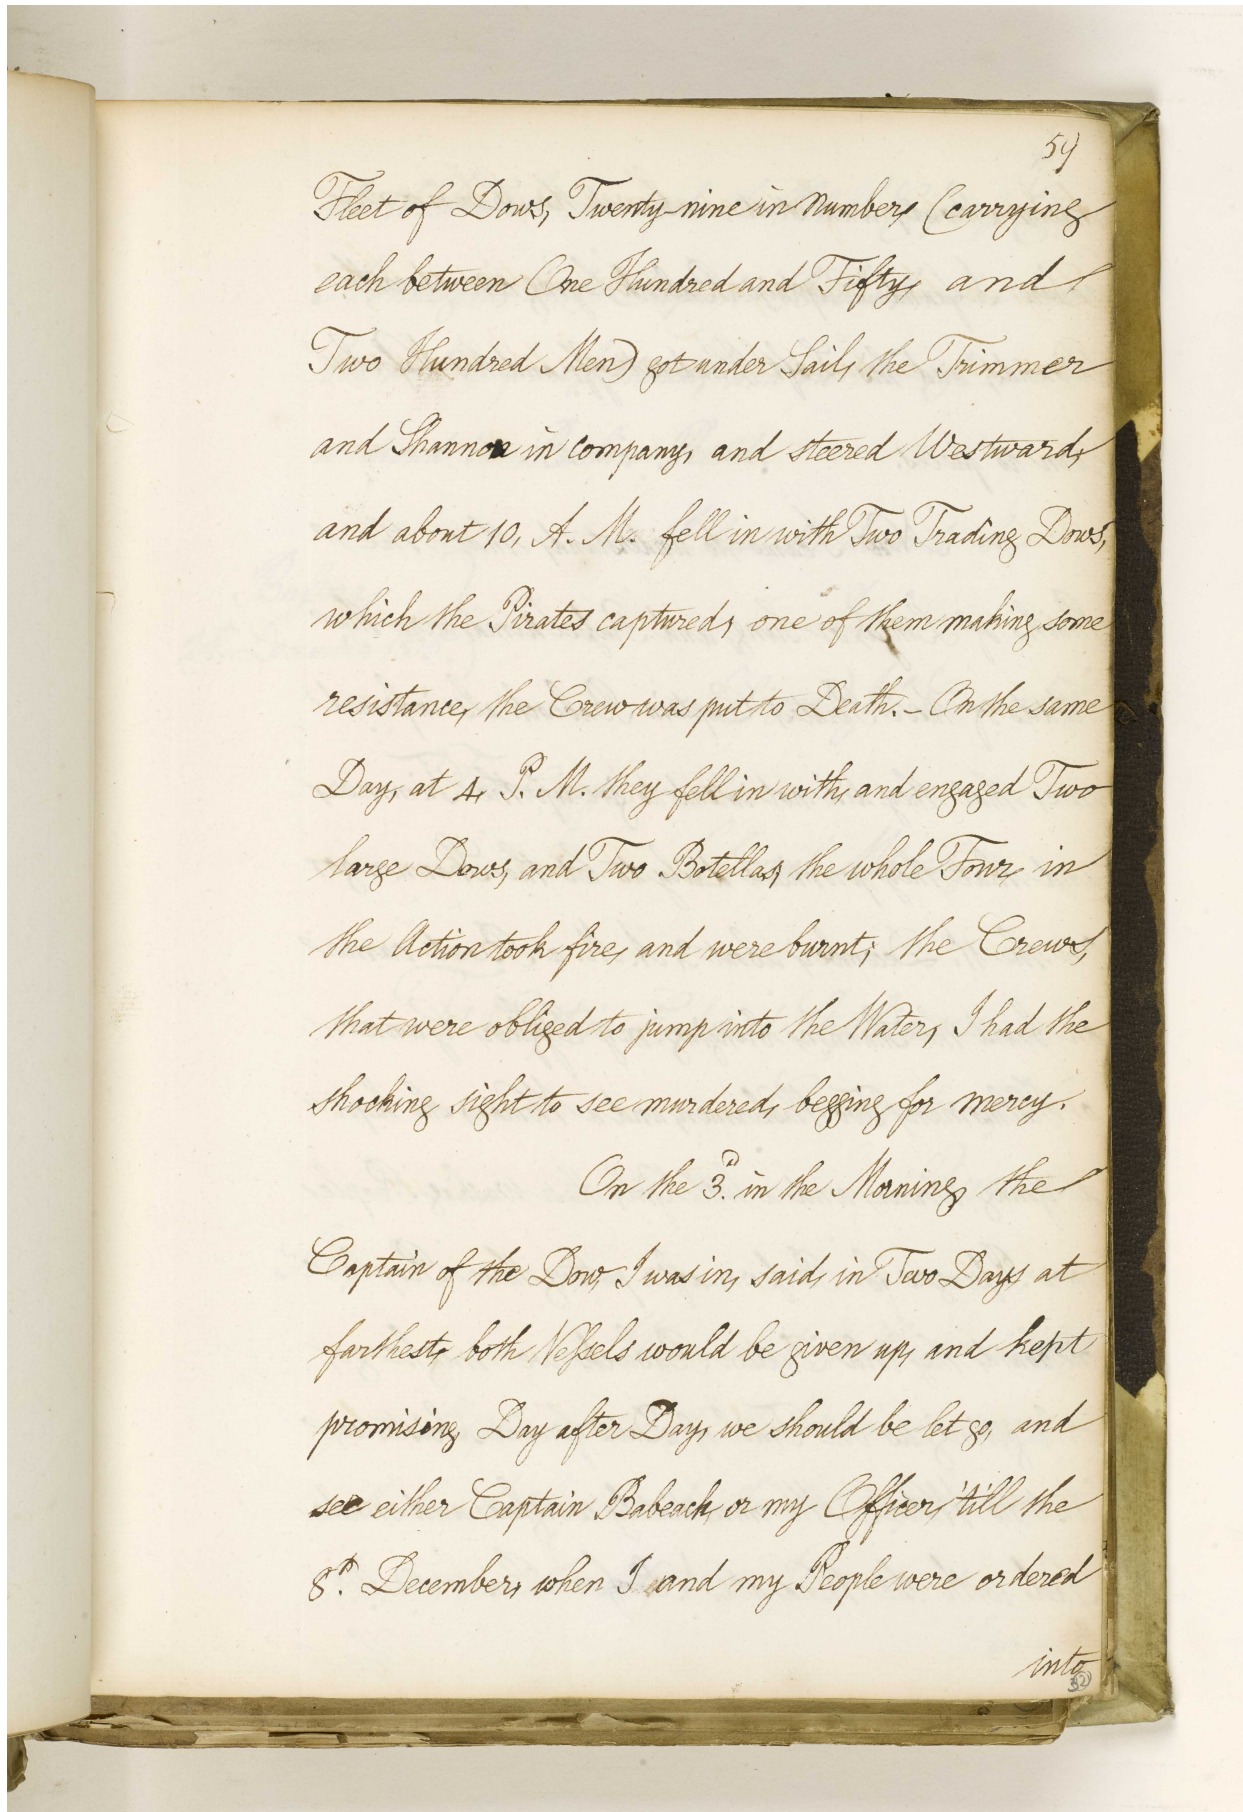 59
Fleet of Dows, Twenty-nine in number, (carrying
each between One Hundred and Fifty, and
Two Hundred Men) got under Sail, the Trimmer
and Shannon in company, and steered Westward,
and about 10, A. M. fell in with Two Trading Dows,
which the Pirates captured, one of them making some
resistance, the Crew was put to Death. - On the same
Day, at 4, P. M. they fell in with, and engaged Two
large Dows, and Two Botellas; the whole Four, in
the Action took fire, and were burnt; the Crews,
that were obliged to jump into the Water, I had the
shocking sight to see murdered, begging for mercy.
On the 3.d in the Morning, the
Captain of the Dow, I was in, said, in Two Days at
farthest, both Vessels would be given up, and kept
promising, Day after Day, we should be let go, and
see either Captain Babeach, or my Officer, 'till the
8.th December, when I and my People were ordered
into
32